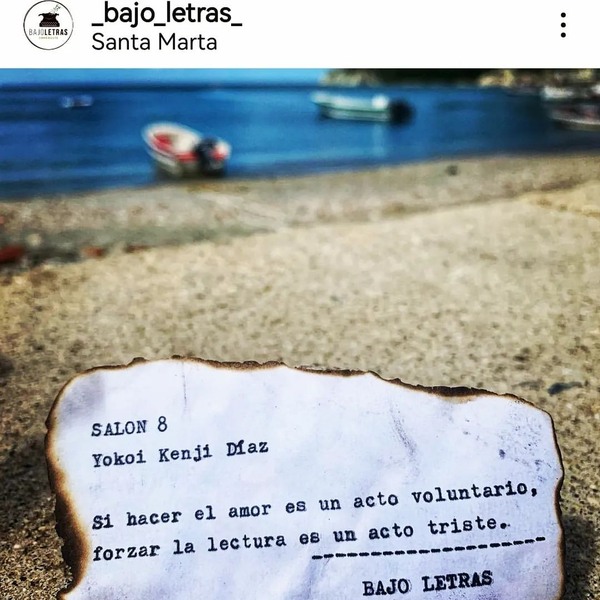 _bajo_letras_
Santa Marta
BAJOLETRAS
SALON 8
Yokoi Kenji Díaz
Si hacer el amor es un acto voluntario,
forzar la lectura es un acto triste.
BAJO LETRAS